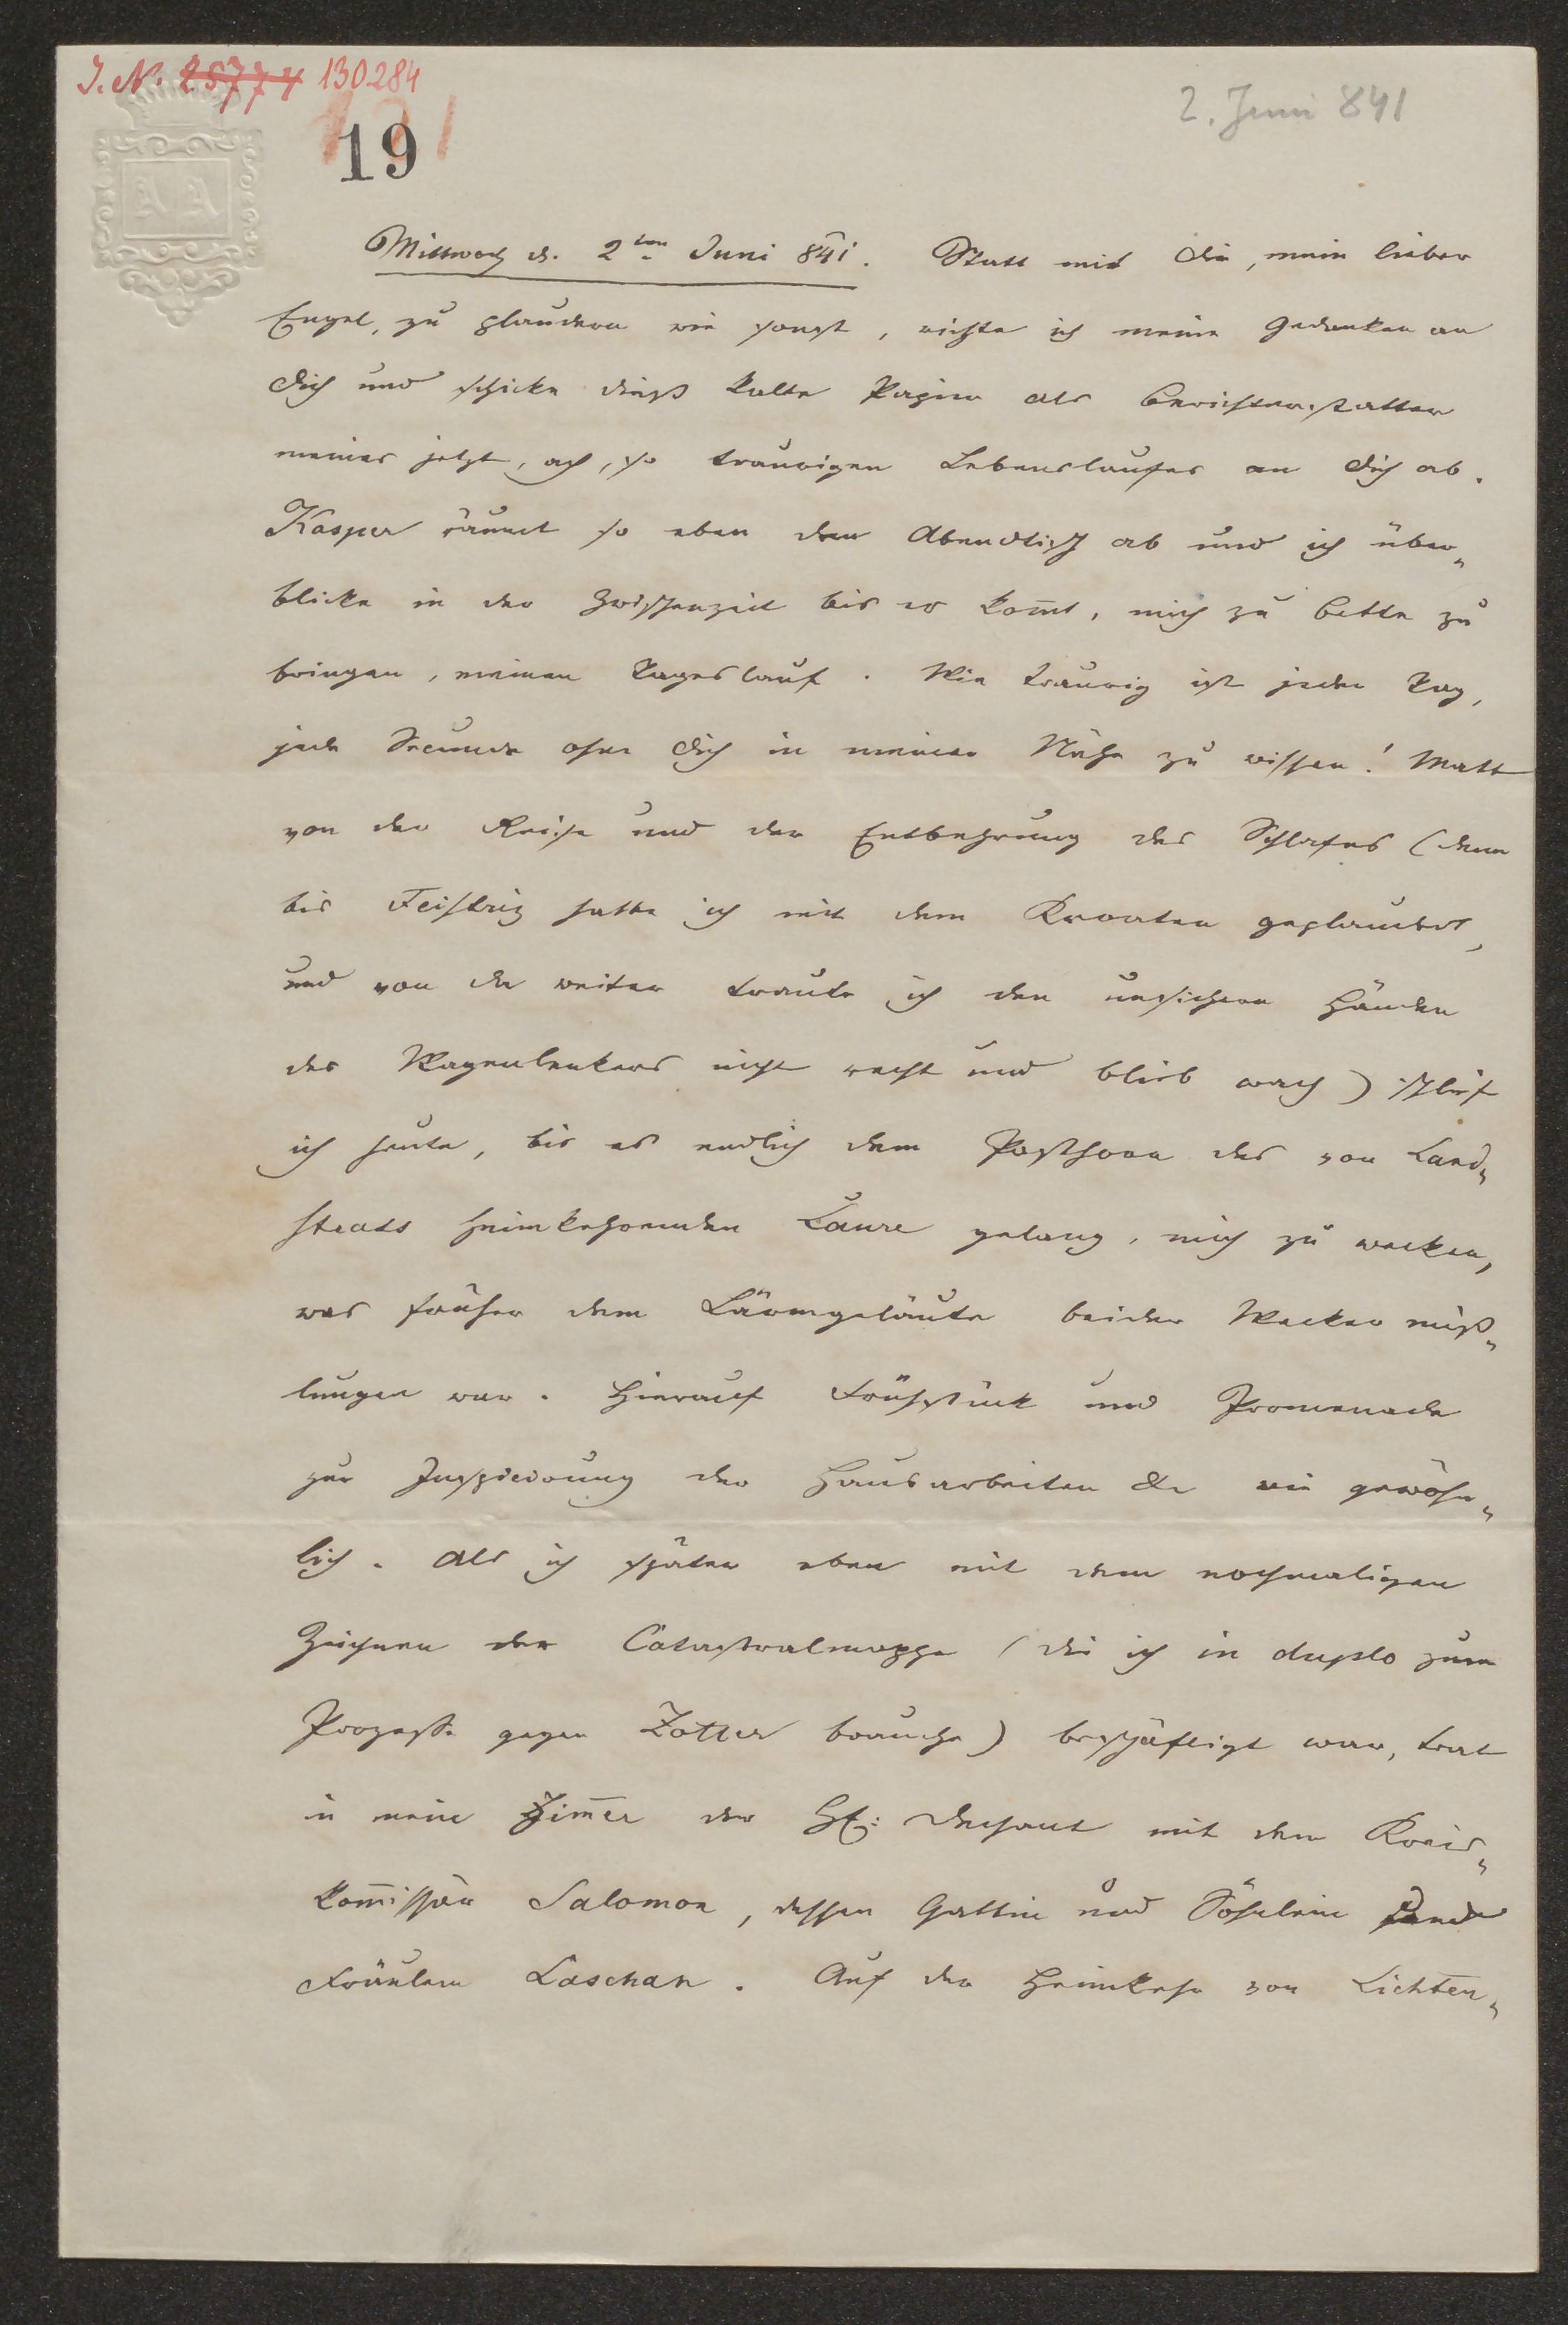 J. N. 25774 130284
2. Juni 841
19
A A
Mittwoch d. 2ten Juni 841. Statt mit dir, mein lieber
Engel, zu plaudern wie sonst, richte ich meine Gedanken an
dich und schicke dieß kalte Papier als Berichterstatter
meines jetzt, ach, so traurigen Lebenslaufes an dich ab.
Kasper räumt so eben den Abendtisch ab und ich über„
blicke in der Zwischenzeit bis er kom̅t, mich zu Bette zu
bringen, meinen Tageslauf. Wie traurig ist jeder Tag,
jede Secunde ohne dich in meiner Nähe zu wissen! Matt
von der Reise und der Entbehrung des Schlafes (denn
bis Feistriz hatte ich mit dem Kroaten geplaudert,
und von da weiter traute ich den unsichern Händen
des Wagenlenkers nicht recht und blieb wach) schlief
ich heute, bis es endlich dem Posthorn des von Land„
straß heimkehrenden Laure gelang, mich zu wecken,
was früher dem Lärmgeläute beider Wecker miß„
lungen war. Hierauf Frühstück und Promenade
zur Inspicirung der Hausarbeiten &c wie gewöhn„
lich. Als ich später eben mit dem nochmaligen
Zeichnen der Catastralmappe (die ich in duplo zum
Prozesse gegen Zotter brauche) beschäftigt war, trat
in mein Zim̅er der H: Dechant mit dem Kreis„
kom̅issär Salomon, dessen Gattin und Söhnlein
Fräulein Laschan. Auf der Heimkehr von Lichten„